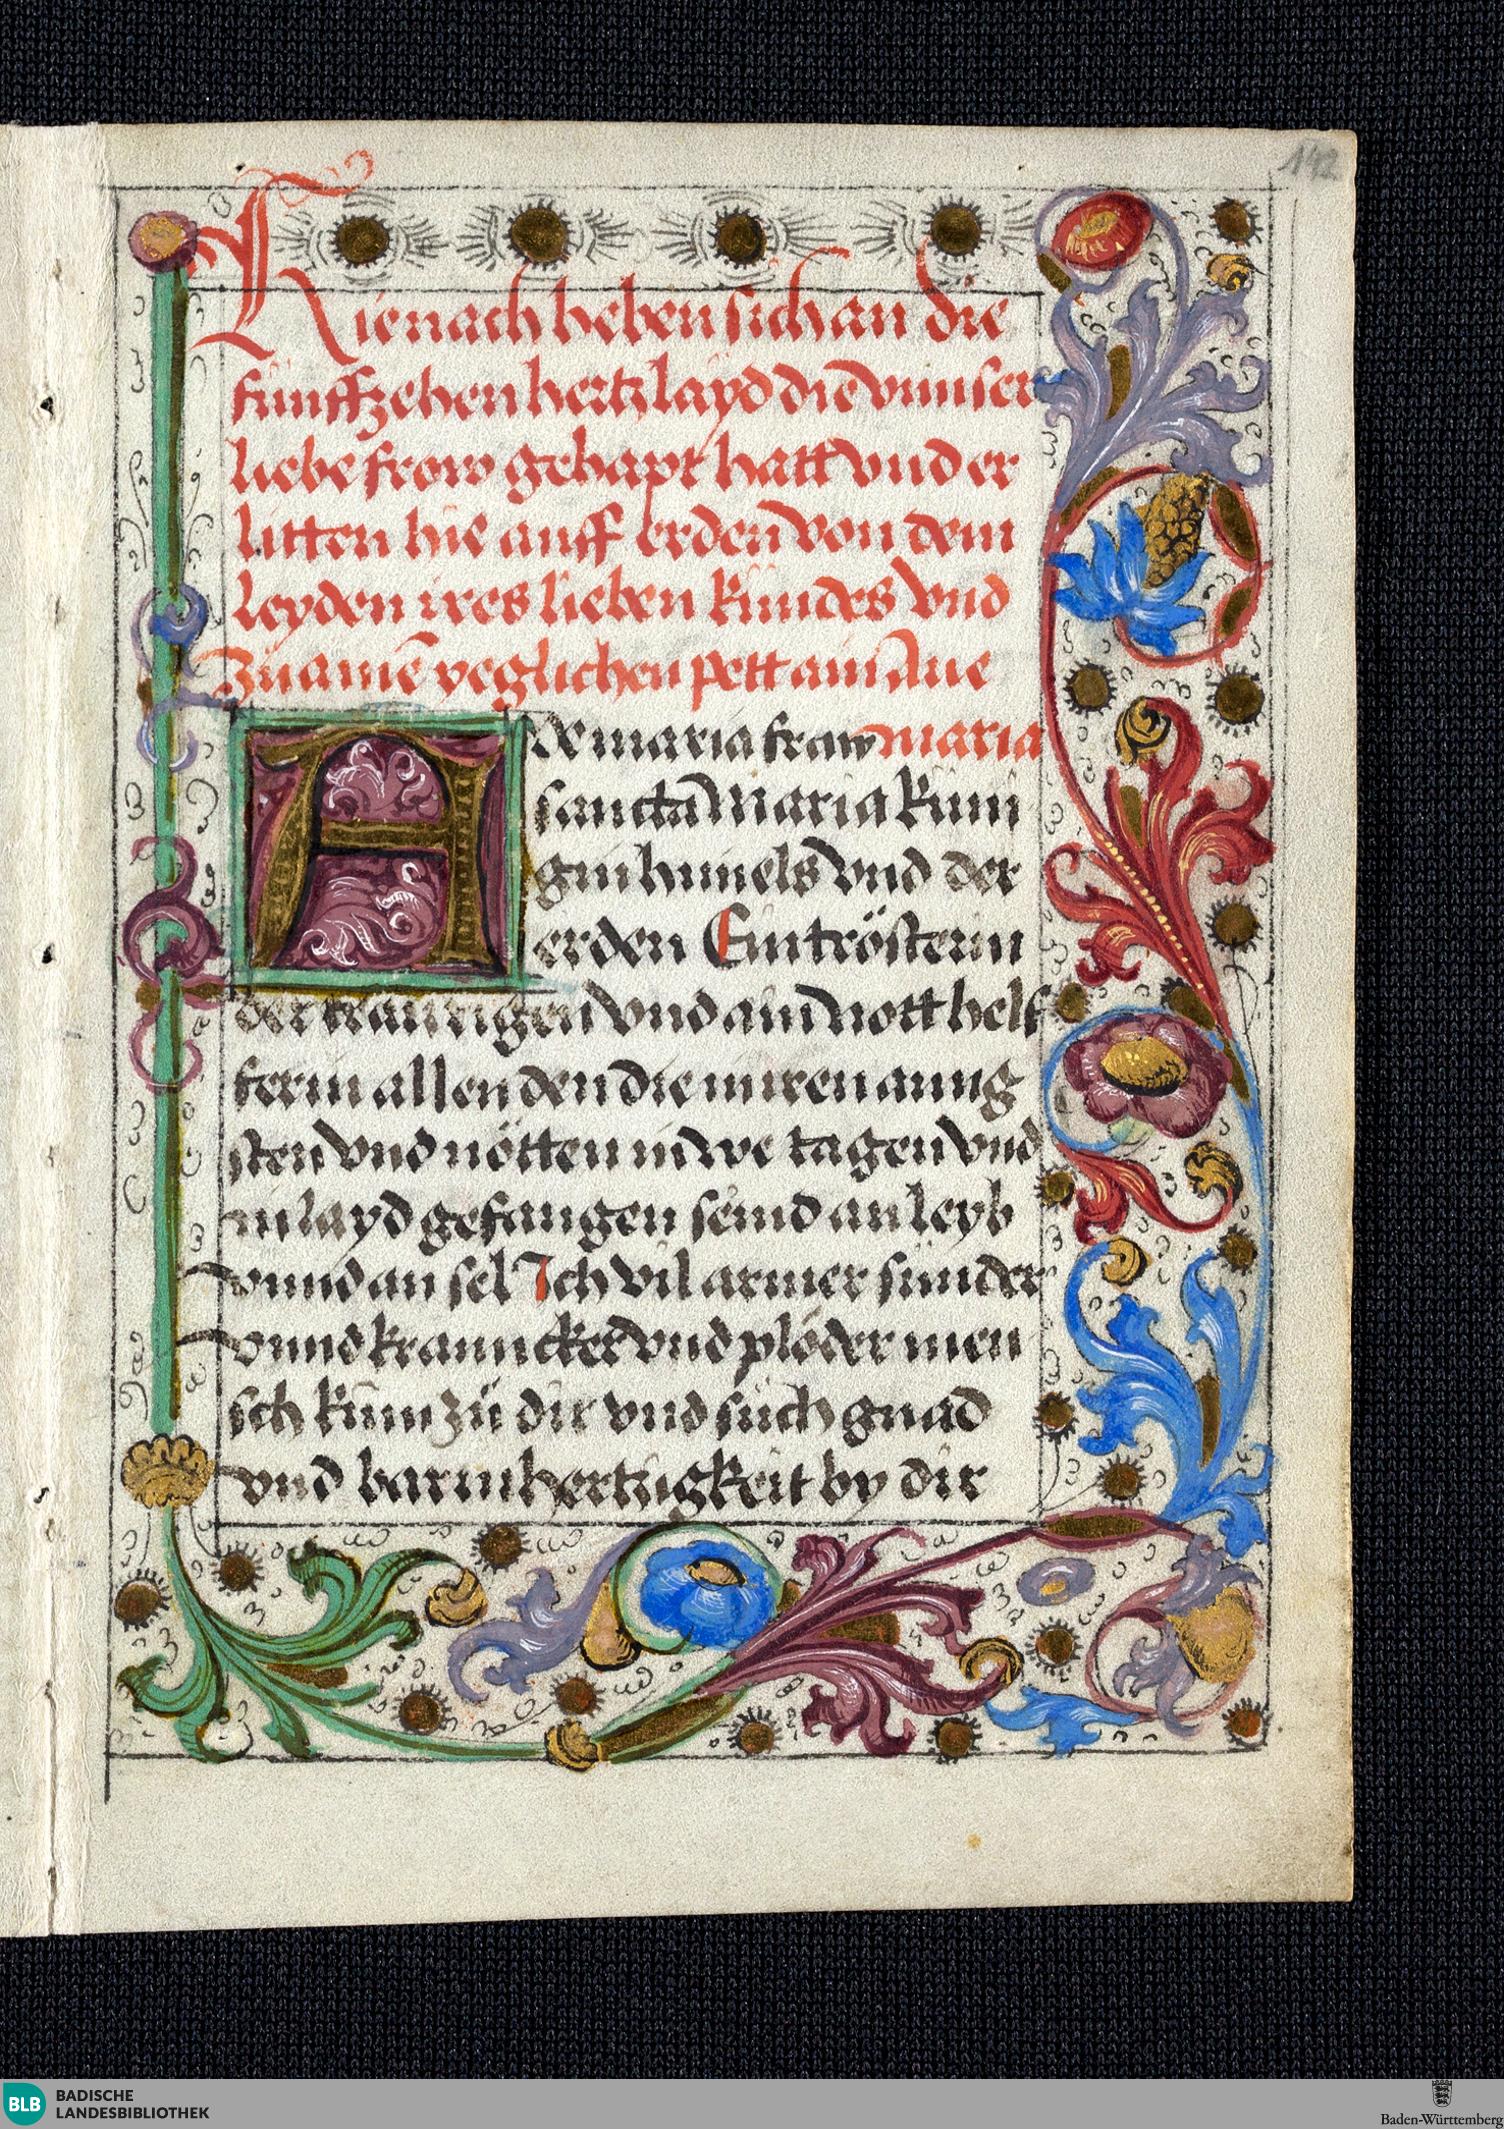 142
Hienach heben sich an die
fünffzehen hertzlayd die vnnser
liebe frow gehapt hatt vnd er
litten hie auff erden von dem
leyden ires lieben kindes vnd
zů aınē yeglichen pett ain Aue
Ave maria fraw maria
sancta Maria küni
gin himels vnd der
erden Ein trösterin
der traurigen vnd ain nott helf
ferin allen den die in iren anng
sten vnd nötten in we tagen vnd
in layd gefangen seind an leyb
vnnd an sel Ich vil armer sünder
vnnd kranncker vnd plöder men
sch kum zů dir vnd sůch gnad
vnd barmhertzigkeit by dir
BLB BADISCHE
LANDESBIBLIOTHEK
Baden-Württemberg